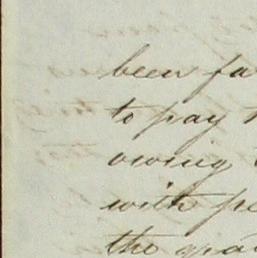 been fa
to pay
owing
with pe
the grea